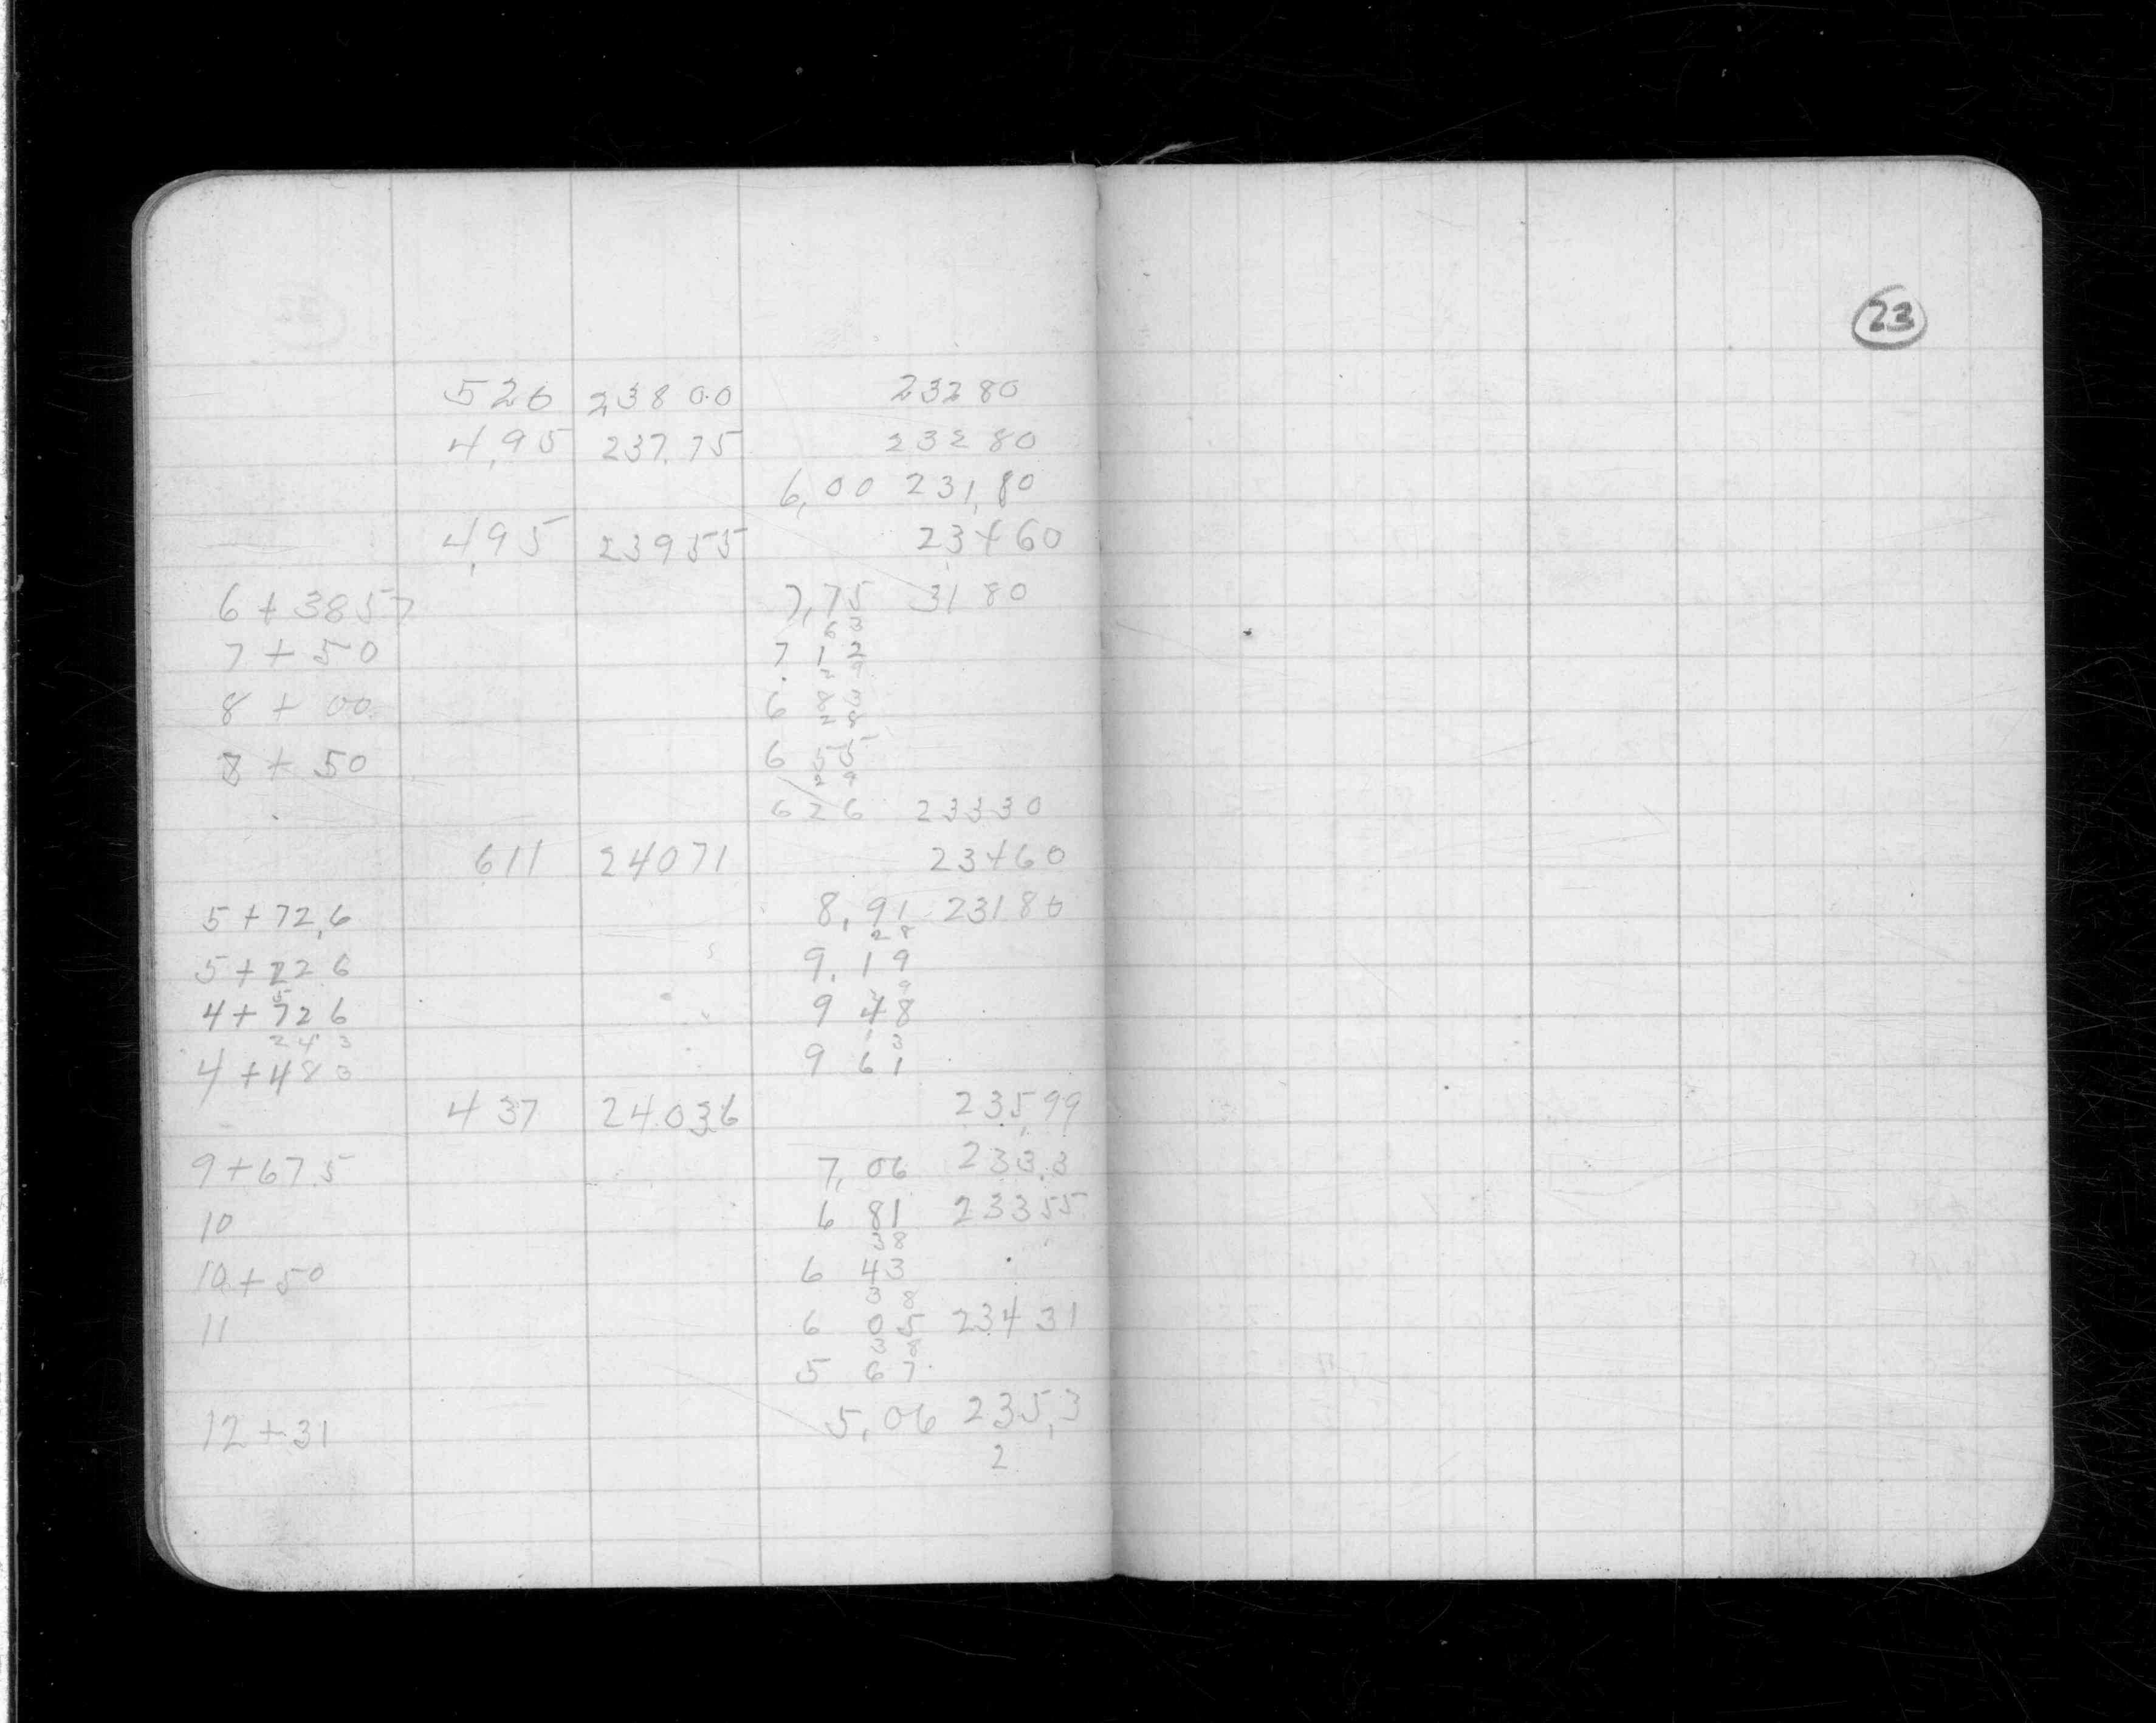 526 23800 23280
4,95 237,75 23280
6,00 231,80
4,95 23955 23460
6+3857 7,75 3180
63
7+50 7 12
29
8+00 6 83
28
8+50 6 55
29
626 23330
611 24071 23460
5+72,6 8,91 23180
28
5+226 9.19
9
4+726 9 48
243 13
4+483 9 61
437 24036 235,99
9+67.5 7,06 233.3
10 6 81 23355
38
10+50 6 43
38
11 6 05 23431
38
5 67
12+31 5,06 235,3
2
23